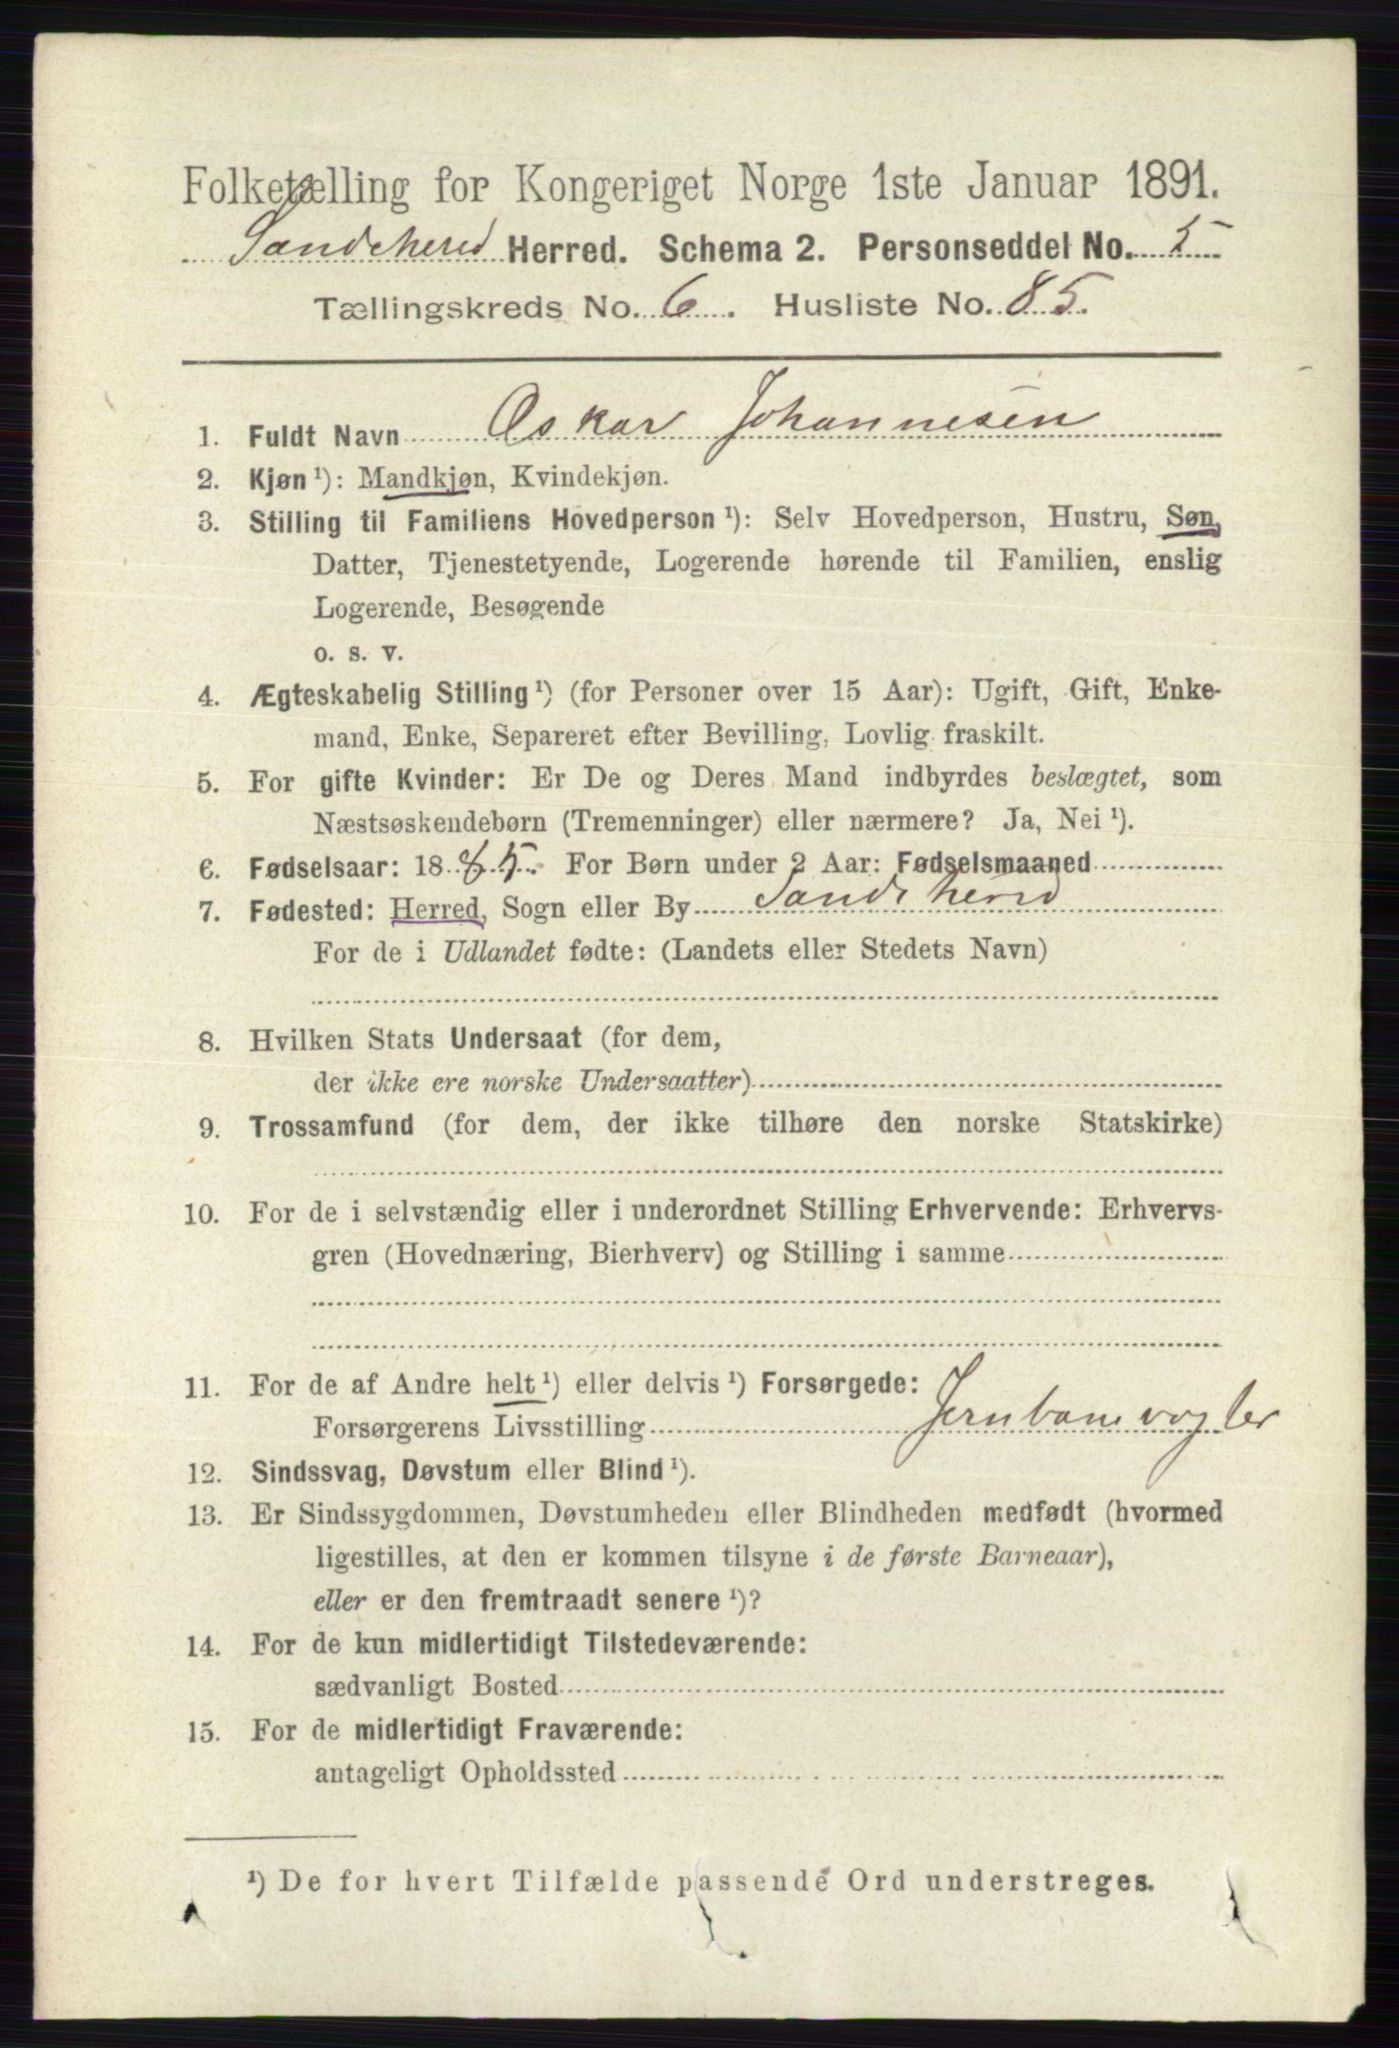 Folketælling for Kongeriget Norge 1ste Januar 1891.
Sandeherred Herred. Schema 2. Personseddel No. 5
Tællingskreds No. 6. Husliste No. 85.
1. Fuldt Navn Oskar Johannesen
2. Kjøn ¹): Mandkjøn, Kvindekjøn.
3. Stilling til Familiens Hovedperson ¹): Selv Hovedperson, Hustru, Søn,
Datter, Tjenestetyende, Logerende hørende til Familien, enslig
Logerende, Besøgende
o. s. v.
4. Ægteskabelig Stilling ¹) (for Personer over 15 Aar): Ugift, Gift, Enke-
mand, Enke, Separeret efter Bevilling, Lovlig fraskilt.
5. For gifte Kvinder: Er De og Deres Mand indbyrdes beslægtet, som
Næstsøskendebørn (Tremenninger) eller nærmere? Ja, Nei ¹).
6. Fødselsaar: 1885. For Børn under 2 Aar: Fødselsmaaned
7. Fødested: Herred, Sogn eller By Sandeherred
For de i Udlandet fødte: (Landets eller Stedets Navn)
8. Hvilken Stats Undersaat (for dem,
der ikke ere norske Undersaatter)
9. Trossamfund (for dem, der ikke tilhøre den norske Statskirke)
10. For de i selvstændig eller i underordnet Stilling Erhvervende: Erhvervs-
gren (Hovednæring, Bierhverv) og Stilling i samme
11. For de af Andre helt ¹) eller delvis ¹) Forsørgede:
Forsørgerens Livsstilling Jernbanevogter
12. Sindssvag, Døvstum eller Blind ¹).
13. Er Sindssygdommen, Døvstumheden eller Blindheden medfødt (hvormed
ligestilles, at den er kommen tilsyne i de første Barneaar),
eller er den fremtraadt senere ¹)?
14. For de kun midlertidigt Tilstedeværende:
sædvanligt Bosted
15. For de midlertidigt Fraværende:
antageligt Opholdssted
¹) De for hvert Tilfælde passende Ord understreges.